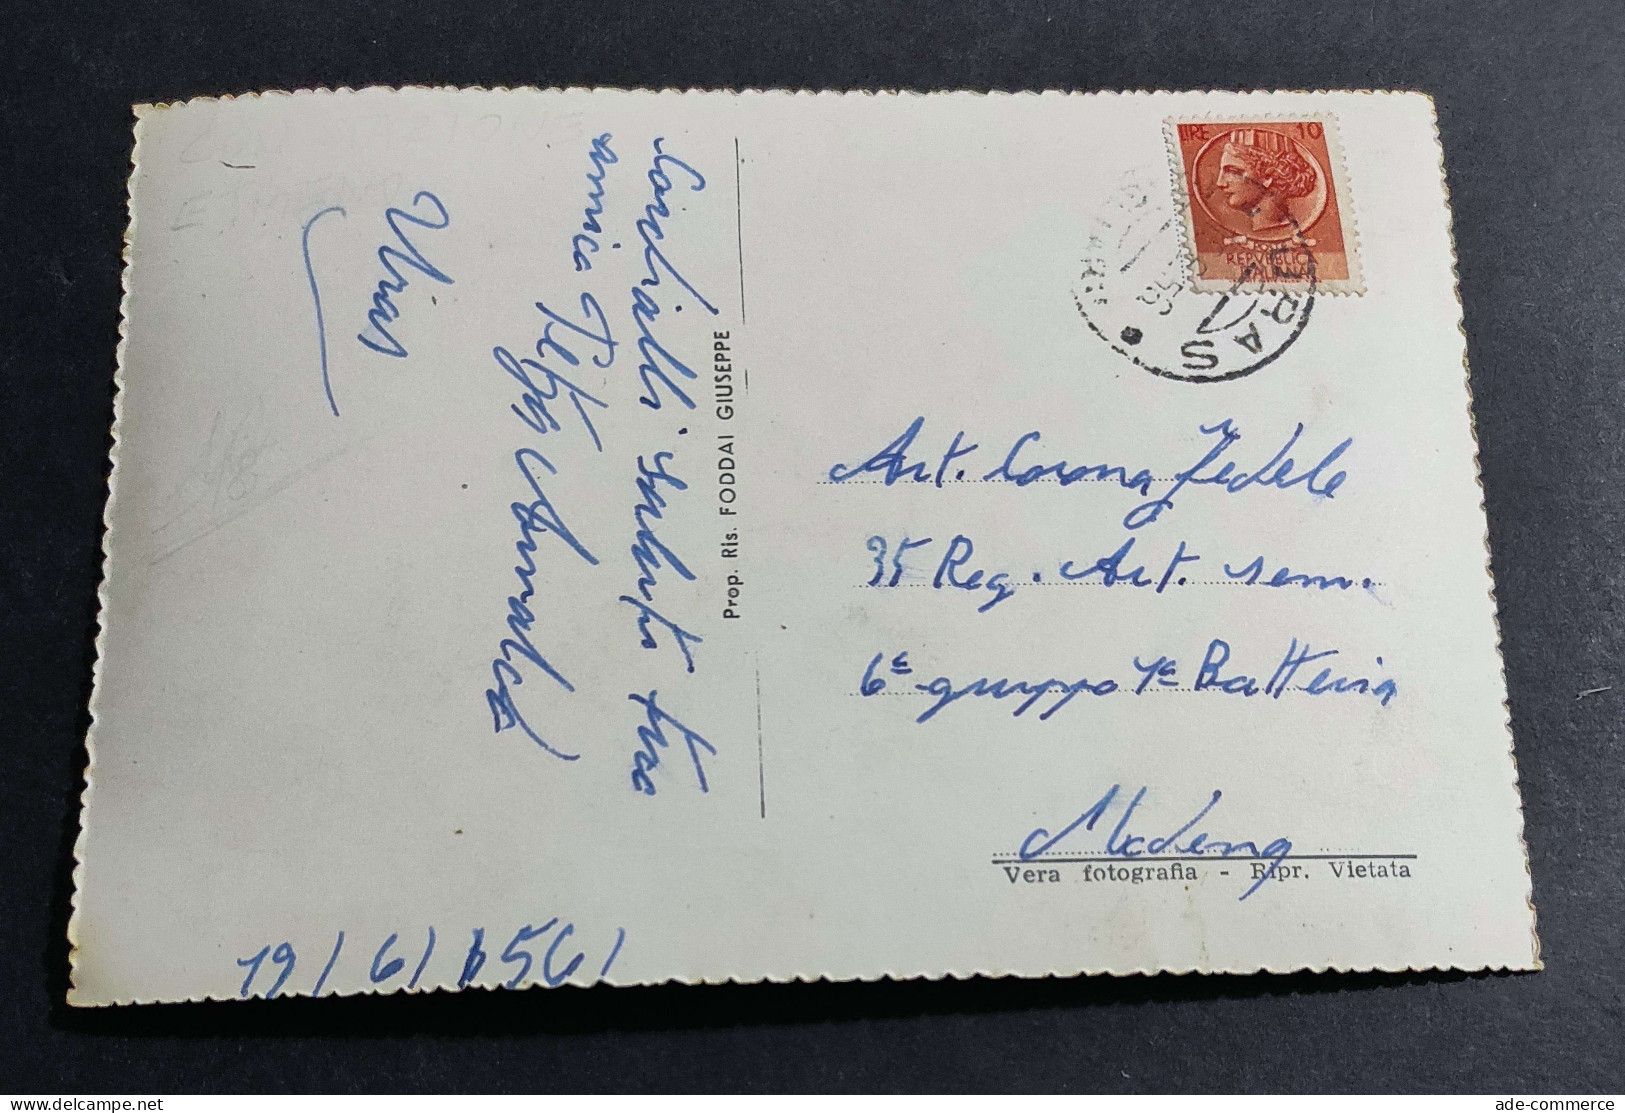 Cordialli saluti tua
amica
Uras
Prop. Ris. FODDAI GIUSEPPE
LIRE 10
REPVBBLICA
ITALIANA
URAS
Art. Corona Fedele
35 Reg. Art. sem.
6ª gruppo 1ª Batteria
Modena
Vera fotografia - Ripr. Vietata
19/6/1956/
ade-commerce